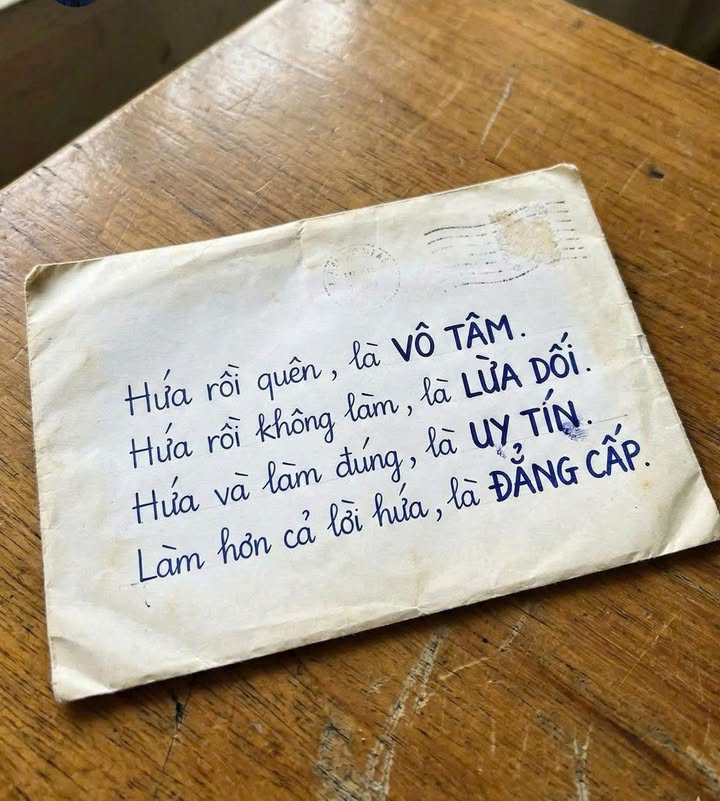 Hứa rồi quên, là VÔ TÂM.
Hứa rồi không làm, là LỪA DỐI.
Hứa và làm đúng, là UY TÍN.
Làm hơn cả lời hứa, là ĐẲNG CẤP.